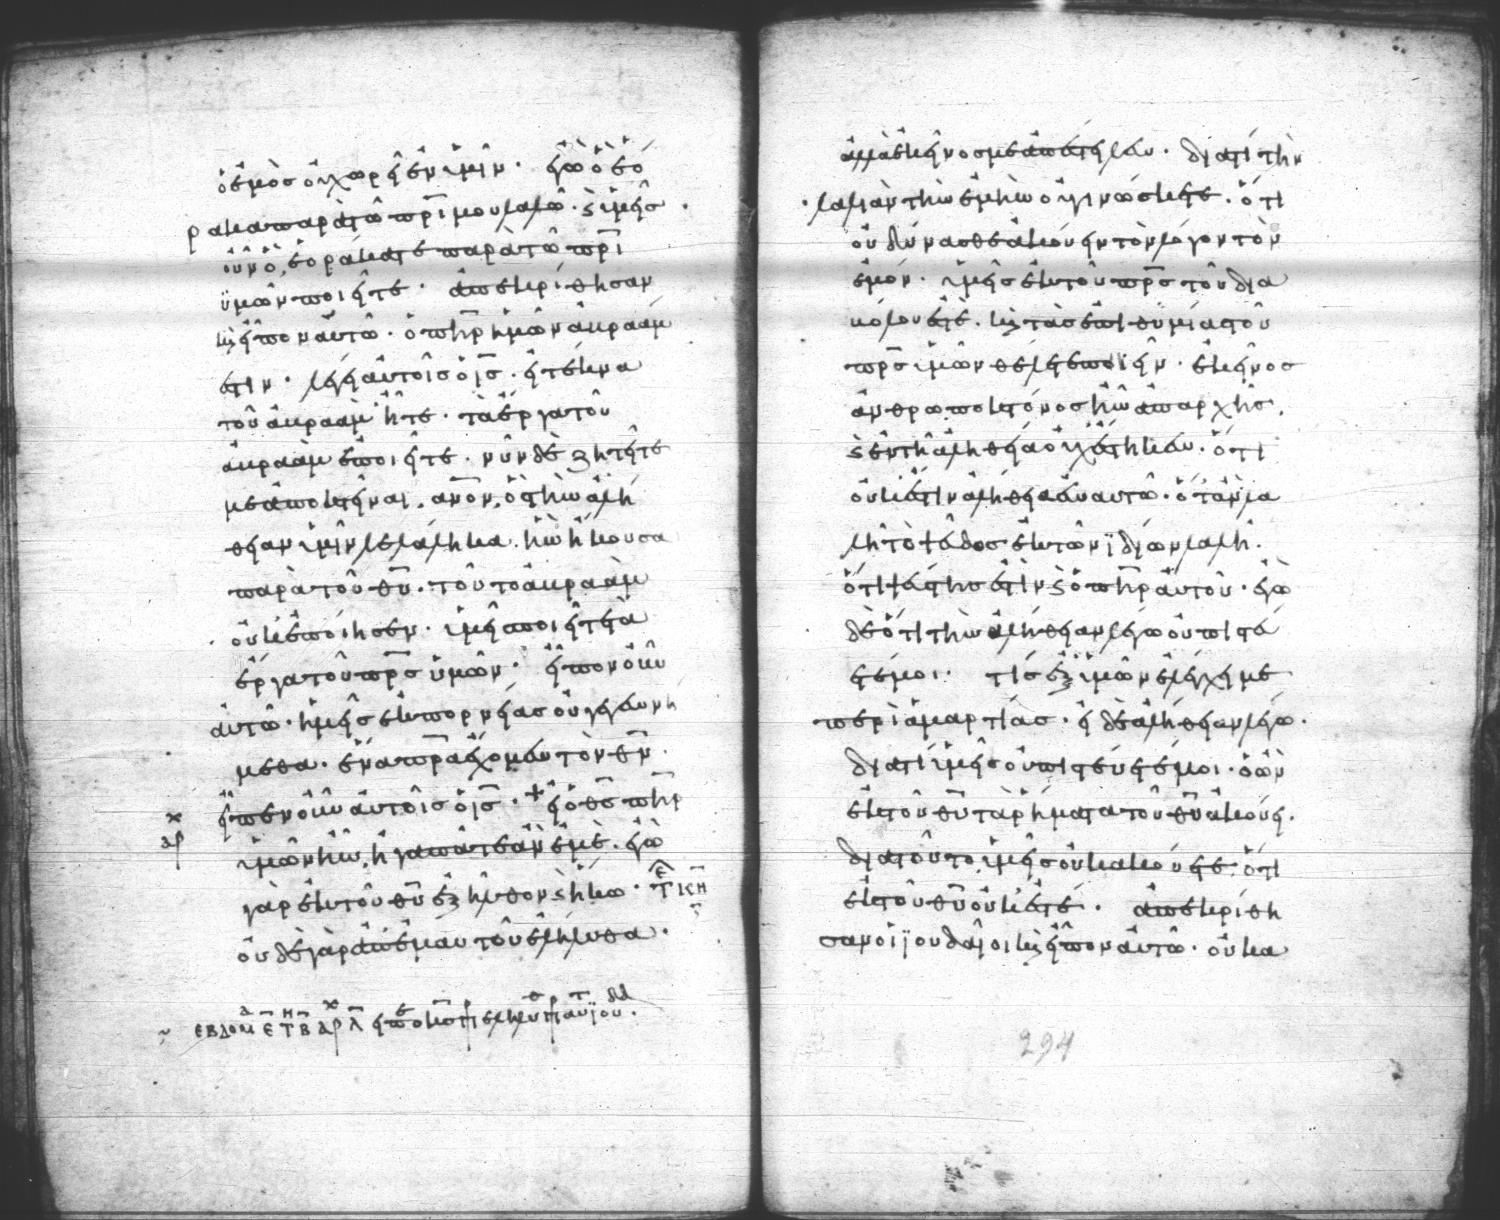 ὁ ἐμὸς οὐ χωρεῖ ἐν ἱμῖν · ἐγὼ ὃ ἑό
ρακα παρὰ τῶ πρι μου λαλῶ · ϗ ἱμεῖς
οὖν ὃ ἑοράκατε παρὰ τῶ πρι
ὑμῶν ποιεῖτε · ἀπεκρίθησαν
κ εἶπον αὐτῶ · ὁ πηρ ἡμῶν ἀβραάμ
ἐστιν · λέγει αὐτοῖς ὁ ις · εἰ τέκνα
τοῦ ἀβραὰμ ἦτε · τὰ ἔργα τοῦ
ἀβραὰμ ἐποιεῖτε · νῦν δὲ ζητεῖτε
με ἀποκτεῖναι · ανον, ὃς τὴν ἀλή
θειαν ἱμῖν λελάληκα · ἣν ἤκουσα
παρὰ τοῦ θυ · τοῦτο ἀβραὰμ
οὐκ ἐποίησεν · ἱμεῖ ποιεῖτε τὰ
ἔργα τοῦ πρς ὑμῶν · εἶπον οὖν
αὐτῶ · ἡμεῖς ἐκ πορνείας οὐ γεγεννή
μεθα · ἕνα πρα ἔχομεν τὸν θν ·
εἶπεν οὖν αὐτοῖς ὁ ις · + εἰ ὁ θς πηρ
ἱμῶν ἦν, ἠγαπᾶτε ἂν ἐμὲ · ἐγὼ
γὰρ ἐκ τοῦ θυ ἐξῆλθον ϗ ἥκω ·
οὐδὲ γὰρ ἀπ' ἐμαυτοῦ ἐλήλυθα ·
ἀλλὰ ἐκεῖνός με ἀπέστειλεν · διατί τὴν
λαλιὰν τὴν ἐμὴν οὐ γινώσκετε · ὅτι
οὐ δύνασθε ἀκούειν τὸν λόγον τὸν
ἐμόν · ἱμεῖς ἐκ τοῦ πρς τοῦ δια
βόλου ἐστὲ · κ τὰς ἐπιθυμίας τοῦ
πρς ἱμῶν θέλετε ποιεῖν · ἐκεῖνος
ἀνθρωποκτόνος ἦν ἀπαρχῆς ·
ϗ ἐν τῆ ἀληθεία οὐχ ἕστηκεν · ὅτι
οὐκ ἔστιν ἀλήθεια ἐν αυτῶ · ὅταν λα
λῆ τὸ ψεῦδος ἐκ τῶν ϊδίων λαλῆ ·
ὅτι ψεύστης ἐστὶν ϗ ὁ πηρ αὐτοῦ · ἐγὼ
δὲ ὅτι τὴν ἀλήθειαν λέγω οὐ πιστε
ετέ μοι · τίς ἐξ ἱμῶν ἐλέγχει με
περὶ ἁμαρτίας · εἰ δὲ ἀλήθειαν λέγω ·
διατί ἱμεῖς οὐ πιστεύετέ μοι · ὁ ὢν
ἐκ τοῦ θυ τὰ ρήματα τοῦ θυ ἀκούει ·
διατοῦτο ἱμεῖς οὐκ ἀκούετε, ὅτι
ἐκ τοῦ θυ οὐκ ἐστέ · ἀπεκρίθη
σαν οἱ ϊουδαῖοι κ εἶπον αὐτῶ · οὐ κα
294